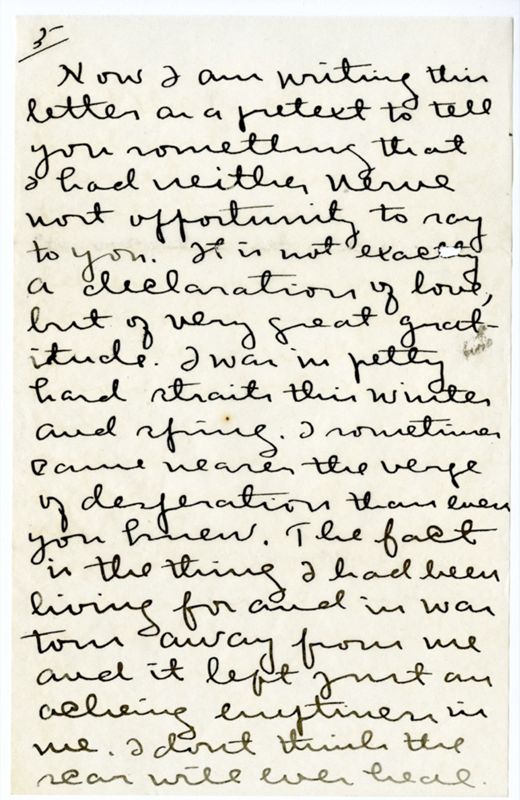 5
Now I am writing this
letter as a pretext to tell
you something that
I had neither nerve
nor opportunity to say
to you. It is not exactly
a declaration of love,
but of very great grat-
itude. I was in petty
hard straits this winter
and spring. I sometimes
came nearer the verge
of desperation than even
you knew. The fact
is the thing I had been
living for and in was
torn away from me
and it left just an
acheing emptiness in
me. I dont think the
scar will ever heal.